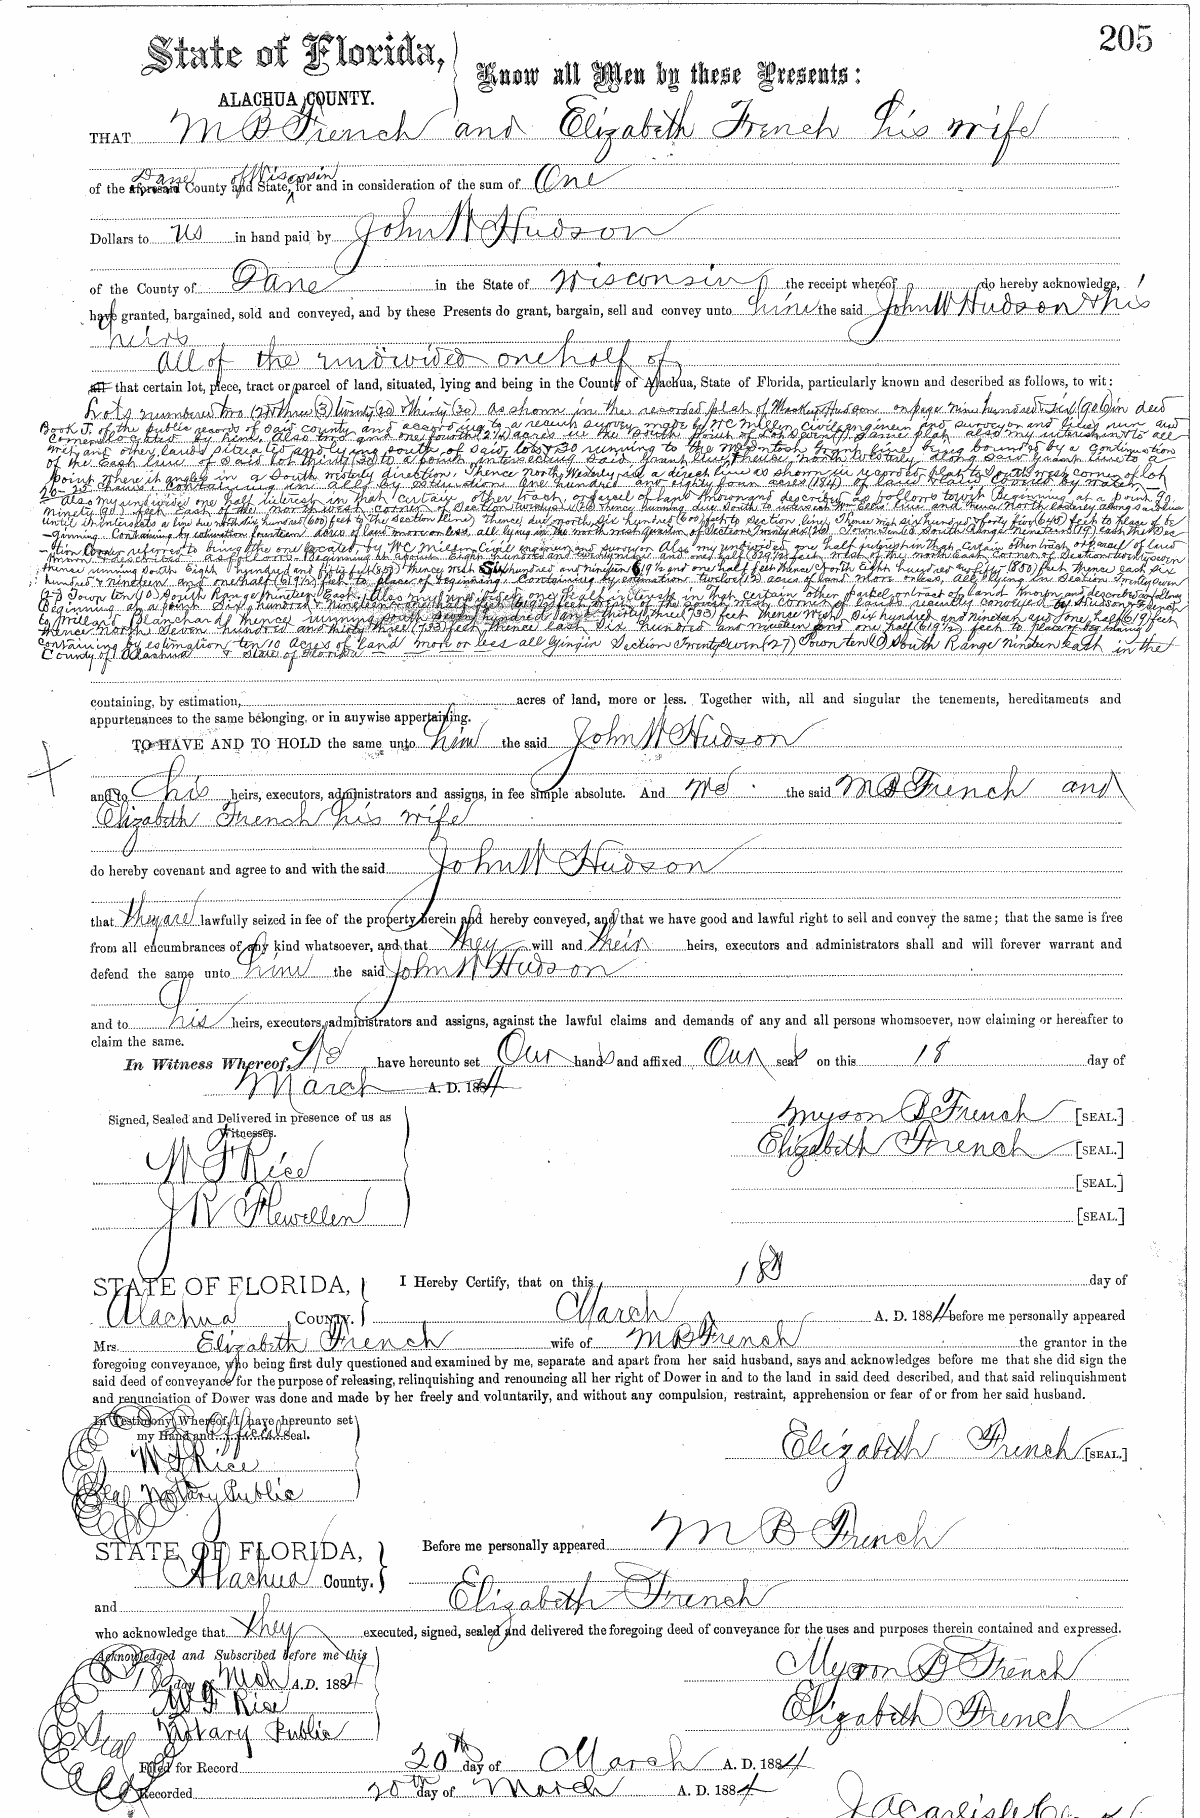 205
State of Florida,
Know all Men by these Presents:
ALACHUA COUNTY.
THAT M B French and Elizabeth French his wife
of the aforesaid Dane County and State, of Wisconsin for and in consideration of the sum of One
Dollars to us in hand paid by John W Hudson
of the County of Dane in the State of Wisconsin the receipt whereof do hereby acknowledge,
have granted, bargained, sold and conveyed, and by these Presents do grant, bargain, sell and convey unto him the said John W Hudson & his
heirs
all of the undivided one half of
all that certain lot, piece, tract or parcel of land, situated, lying and being in the County of Alachua, State of Florida, particularly known and described as follows, to wit:
Lots numbered two (2) three (3) twenty (20) & thirty (30) as shown in the recorded plat of on page nine hundred & six (906) in deed
Book J. of the public records of said county and according to a recent survey made by W C Miller civil engineer and surveyor and lines run and
corners located by him. Also two and one fourth (2¼) acres in the South of Lot Seven (7) Same plat also my interest in to all
and other lands situated and lying south of said lots 30 running to the McIntosh Grant line, being bounded by a continuation
of the East line of said Lot thirty (30) to a point intersecting said Grant line, thence North Westerly along said grant line to a
point where it angles in a South westerly direction, Thence North Westerly in a direct line as shown in recorded plat to South west corner of lot
containing in all by estimation One hundred and eighty four acres (184) of land
also my undivided one half interest in that certain other tract or parcel of land known and described as follows to wit Beginning at a point 90
ninety (90) feet East of the northwest corner of Section twenty six (26) thence running due South to intersect Wm Ellis line and thence North easterly along
until it intersects a line due north six hundred (600) feet to the section line, thence due north six hundred (600) feet to section line, Thence west six hundred & forty five (645) feet to place of be
-ginning. Containing by estimation fourteen acres of land more or less, all lying in the north west quarter of Section Twenty six (26) Town Ten 10 South Range Nineteen (19) East the Sec
-tion Corner referred to being the one located by W C Miller Civil engineer and surveyor Also my undivided one half interest in that certain other tract or parcel of land
known & described as follows. Beginning at a point Six hundred and nineteen and one half (619½) feet West of the north East corner of Section Twenty seven
thence running South Eight hundred and fifty feet (850) thence West Six hundred and nineteen 619½ and one half feet thence North Eight hundred and fifty (850) feet, thence east six
hundred & nineteen and one half (619½) feet to place of beginning. Containing by estimation twelve 12 acres of land more or less, all lying in Section Twenty seven
(27) Town ten 10 South Range Nineteen East, Also my undivided one half interest in that certain other parcel or tract of land known and described as follows
Beginning at a point Six hundred & nineteen & one half feet (619½) feet West of the South West corner of lands recently conveyed by Hudson & French
to Millard Blanchard thence running South Seven hundred and thirty three (733) feet thence West Six hundred and nineteen and one half (619½) feet
thence North Seven hundred and thirty three (733) feet thence East Six hundred and nineteen and one half (619½) feet to place of beginning
containing by estimation ten 10 acres of land more or less all lying in Section Twenty seven (27) Town ten (10) South Range Nineteen east in the
County of Alachua & State of Florida
containing, by estimation, acres of land, more or less. Together with, all and singular the tenements, hereditaments and
appurtenances to the same belonging, or in anywise appertaining.
TO HAVE AND TO HOLD the same unto him the said John W Hudson
and to his heirs, executors, administrators and assigns, in fee simple absolute. And We the said M B French and
Elizabeth French his wife
do hereby covenant and agree to and with the said John W Hudson
that they are lawfully seized in fee of the property herein and hereby conveyed, and that we have good and lawful right to sell and convey the same; that the same is free
from all encumbrances of any kind whatsoever, and that they will and their heirs, executors and administrators shall and will forever warrant and
defend the same unto him the said John W Hudson
and to his heirs, executors, administrators and assigns, against the lawful claims and demands of any and all persons whomsoever, now claiming or hereafter to
claim the same.
In Witness Whereof, We have hereunto set Our hands and affixed Our seals on this 18 day of
March A. D. 1884
Signed, Sealed and Delivered in presence of us as
Witnesses.
W F Rice
J R Flewellen
Myron B French [SEAL.]
Elizabeth French [SEAL.]
[SEAL.]
[SEAL.]
STATE OF FLORIDA,
Alachua COUNTY.
I Hereby Certify, that on this 18th day of
March A. D. 1884 before me personally appeared
Mrs. Elizabeth French wife of M B French the grantor in the
foregoing conveyance, who being first duly questioned and examined by me, separate and apart from her said husband, says and acknowledges before me that she did sign the
said deed of conveyance for the purpose of releasing, relinquishing and renouncing all her right of Dower in and to the land in said deed described, and that said relinquishment
and renunciation of Dower was done and made by her freely and voluntarily, and without any compulsion, restraint, apprehension or fear of or from her said husband.
In Testimony Whereof, I have hereunto set
my Hand and Official seal.
W F Rice
Seal Notary Public
Elizabeth French [SEAL.]
STATE OF FLORIDA,
Alachua County.
Before me personally appeared M B French
and Elizabeth French
who acknowledge that they executed, signed, sealed and delivered the foregoing deed of conveyance for the uses and purposes therein contained and expressed.
Acknowledged and Subscribed before me this
18 day of Mch A.D. 1884
W F Rice
Seal Notary Public
Myron B French
Elizabeth French
Filed for Record 20th day of March A. D. 1884
Recorded 20th day of March A. D. 1884
J A Carlisle